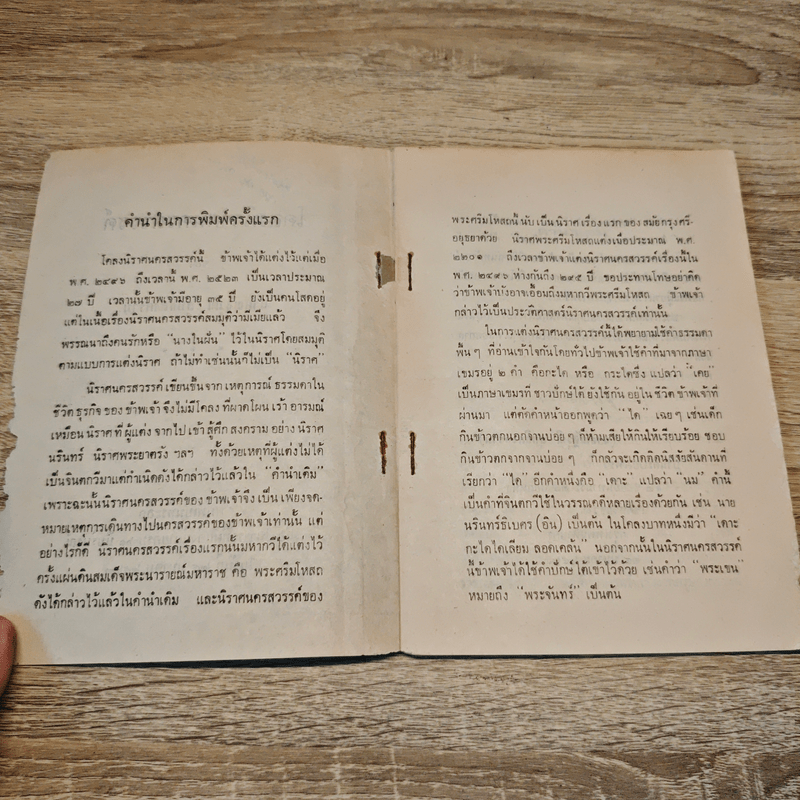 คำนำในการพิมพ์ครั้งแรก
โคลงนิราศนครสวรรค์นี้ ข้าพเจ้าได้แต่งไว้แต่เมื่อ
พ.ศ. ๒๔๙๖ ถึงเวลานี้ พ.ศ. ๒๕๒๓ เป็นเวลาประมาณ
๒๗ ปี เวลานั้นข้าพเจ้ามีอายุ ๓๕ ปี ยังเป็นคนโสดอยู่
แต่ในเนื้อเรื่องนิราศนครสวรรค์สมมุติว่ามีเมียแล้ว จึง
พรรณนาถึงคนรักหรือ "นางในฝัน" ไว้ในนิราศโดยสมมุติ
ตามแบบการแต่งนิราศ ถ้าไม่ทำเช่นนั้นก็ไม่เป็น "นิราศ"
นิราศนครสวรรค์ เขียนขึ้นจาก เหตุการณ์ ธรรมดาใน
ชีวิต ธุรกิจ ของ ข้าพเจ้า จึงไม่มีโคลง ที่ผาดโผน เร้า อารมณ์
เหมือน นิราศ ที่ ผู้แต่ง จากไป เข้า สู้ศึก สงคราม อย่าง นิราศ
นรินทร์ นิราศพระยาตรัง ฯลฯ ทั้งด้วยเหตุที่ผู้แต่งไม่ได้
เป็นจินตกวีมาแต่กำเนิดดังได้กล่าวไว้แล้วใน "คำนำเดิม"
เพราะฉะนั้นนิราศนครสวรรค์ของ ข้าพเจ้าจึง เป็น เพียงจด-
หมายเหตุการเดินทางไปนครสวรรค์ของข้าพเจ้าเท่านั้น แต่
อย่างไรก็ดี นิราศนครสวรรค์เรื่องแรกนั้นมหากวีได้แต่งไว้
ครั้งแผ่นดินสมเด็จพระนารายณ์มหาราช คือ พระศรีมโหสถ
ดังได้กล่าวไว้แล้วในคำนำเดิม และนิราศนครสวรรค์ของ
พระศรีมโหสถนี้ นับ เป็น นิราศ เรื่อง แรก ของ สมัย กรุง ศรี-
อยุธยาด้วย นิราศพระศรีมโหสถแต่งเมื่อประมาณ พ.ศ.
๒๒๐๑ ถึงเวลาข้าพเจ้าแต่งนิราศนครสวรรค์เรื่องนี้ใน
พ.ศ. ๒๔๙๖ ห่างกันถึง ๒๙๕ ปี ขอประทานโทษอย่าคิด
ว่าข้าพเจ้าบังอาจเอื้อนถึงมหากวีพระศรีมโหสถ ข้าพเจ้า
กล่าวไว้เป็นประวัติศาสตร์นิราศนครสวรรค์เท่านั้น
ในการแต่งนิราศนครสวรรค์นี้ได้พยายามใช้คำธรรมดา
พื้น ๆ ที่อ่านเข้าใจกันโดยทั่วไปข้าพเจ้าใช้คำที่มาจากภาษา
เขมรอยู่ ๒ คำ คือกะได หรือ กระไดซึ่ง แปลว่า "เคย"
เป็นภาษาเขมรที่ ชาวปักษ์ใต้ ยังใช้กัน อยู่ใน ชีวิต ข้าพเจ้าที่
ผ่านมา แต่ตัดคำหน้าออกพูดว่า "ได" เฉย ๆ เช่นเด็ก
กินข้าวตกนอกจานบ่อย ๆ ก็ห้ามเสียให้กินให้เรียบร้อย ชอบ
กินข้าวตกจากจานบ่อย ๆ ก็กลัวจะเกิดติดนิสสัยสันดานที่
เรียกว่า "ได" อีกคำหนึ่งคือ "เดาะ" แปลว่า "นม" คำนี้
เป็นคำที่จินตกวีใช้ในวรรณคดีหลายเรื่องด้วยกัน เช่น นาย
นรินทร์ธิเบศร (อิน) เป็นต้น ในโคลงบาทหนึ่งมีว่า "เดาะ
กะไดไดเลียม ลอดเคล้น" นอกจากนั้นในนิราศนครสวรรค์
นี้ข้าพเจ้าได้ใช้คำปักษ์ ใต้เข้าไว้ด้วย เช่นคำว่า "พระเขน"
หมายถึง "พระจันทร์" เป็นต้น